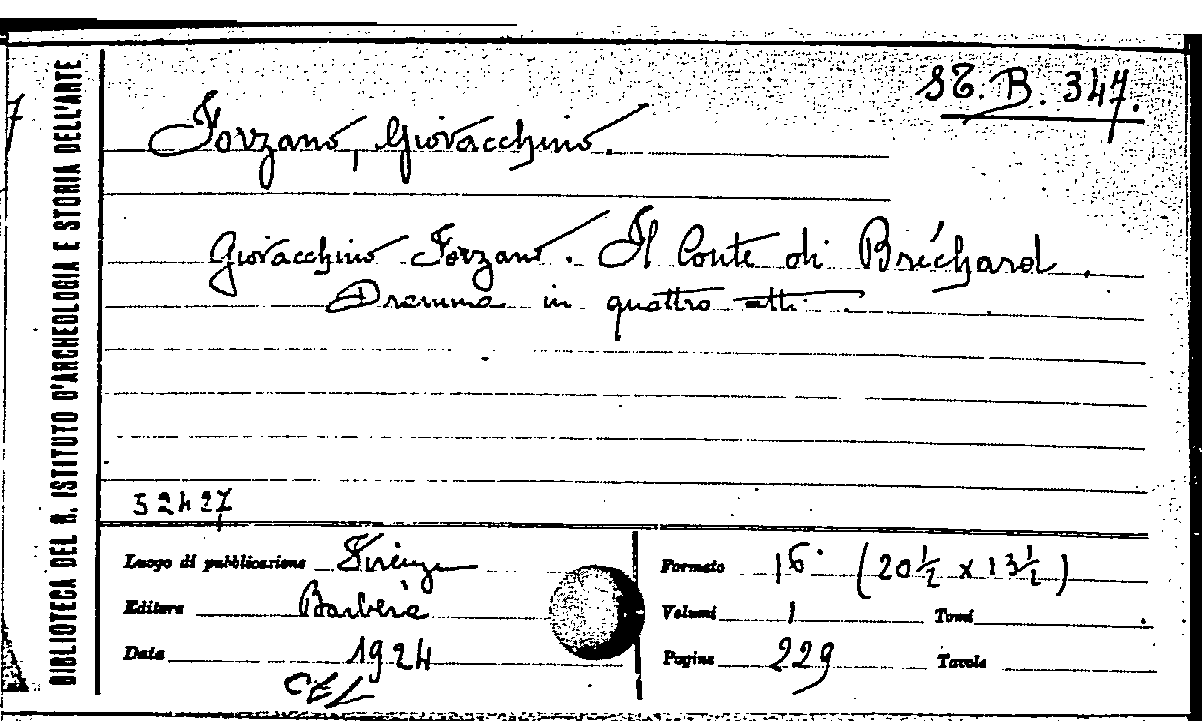 BIBLIOTECA DEL R. ISTITUTO D'ARCHEOLOGIA E STORIA DELL'ARTE
ST. B. 347.
Forzano, Giovacchino.
Giovacchino Forzano. Il Conte di Bréchard.
Dramma in quattro atti.
52427
Luogo di pubblicazione Firenze
Editore Barbèra
Data 1924
CEL
Formato 16° (20½ x 13½)
Volumi 1 Tomi
Pagine 229 Tavole